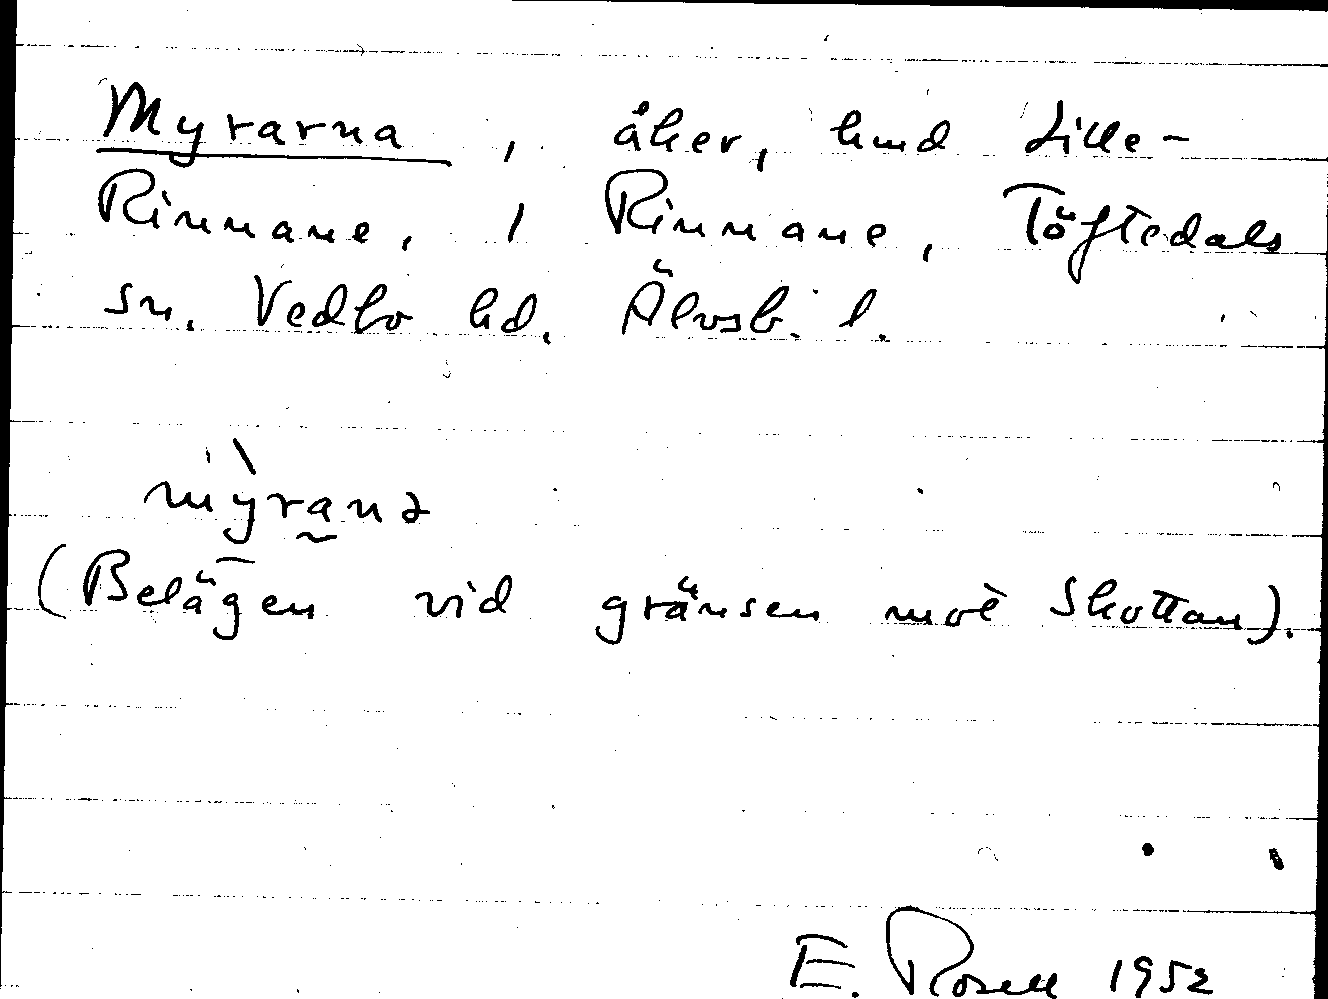 Myrarna, åker, hmd Lille-
Rinnane, 1 Rinnane, Töftedals
sn. Vedbo hd. Älvsb. l.
mỳranə
(Belägen vid gränsen mot Skottan).
E. Rosell 1952